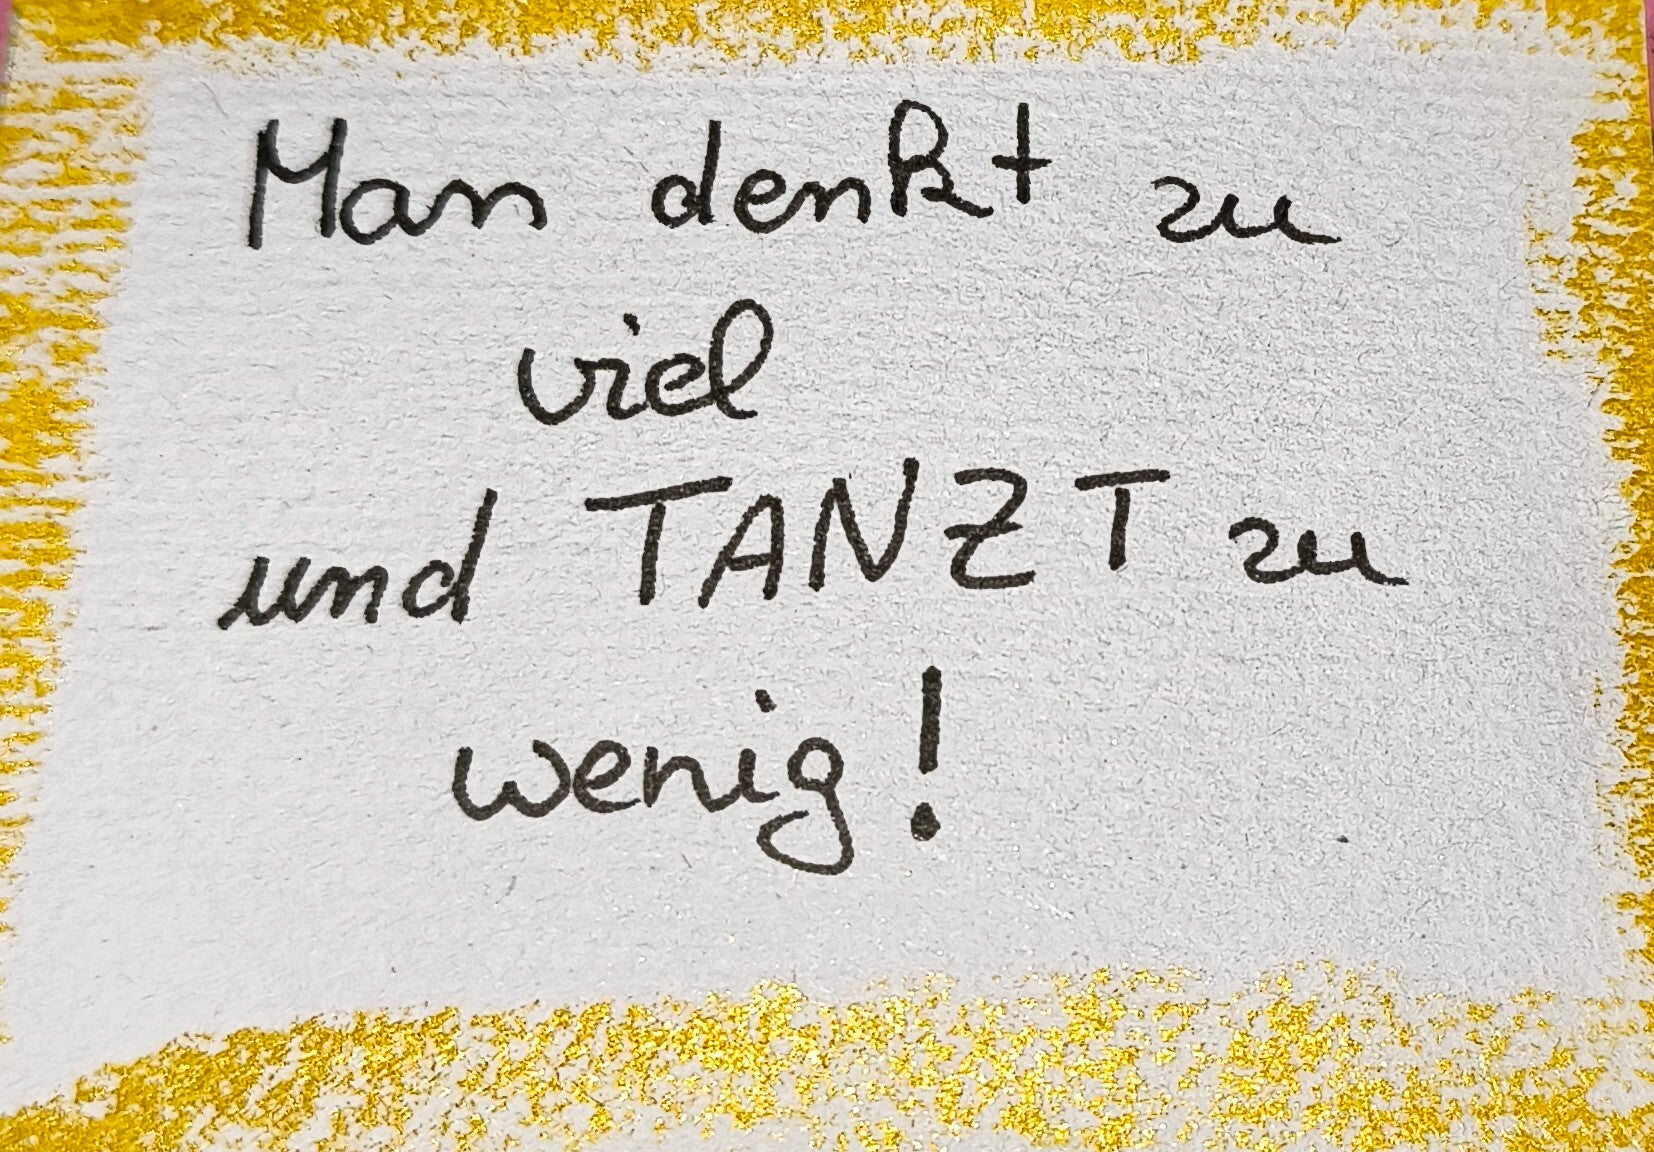 Man denkt zu
viel
und TANZT zu
wenig!